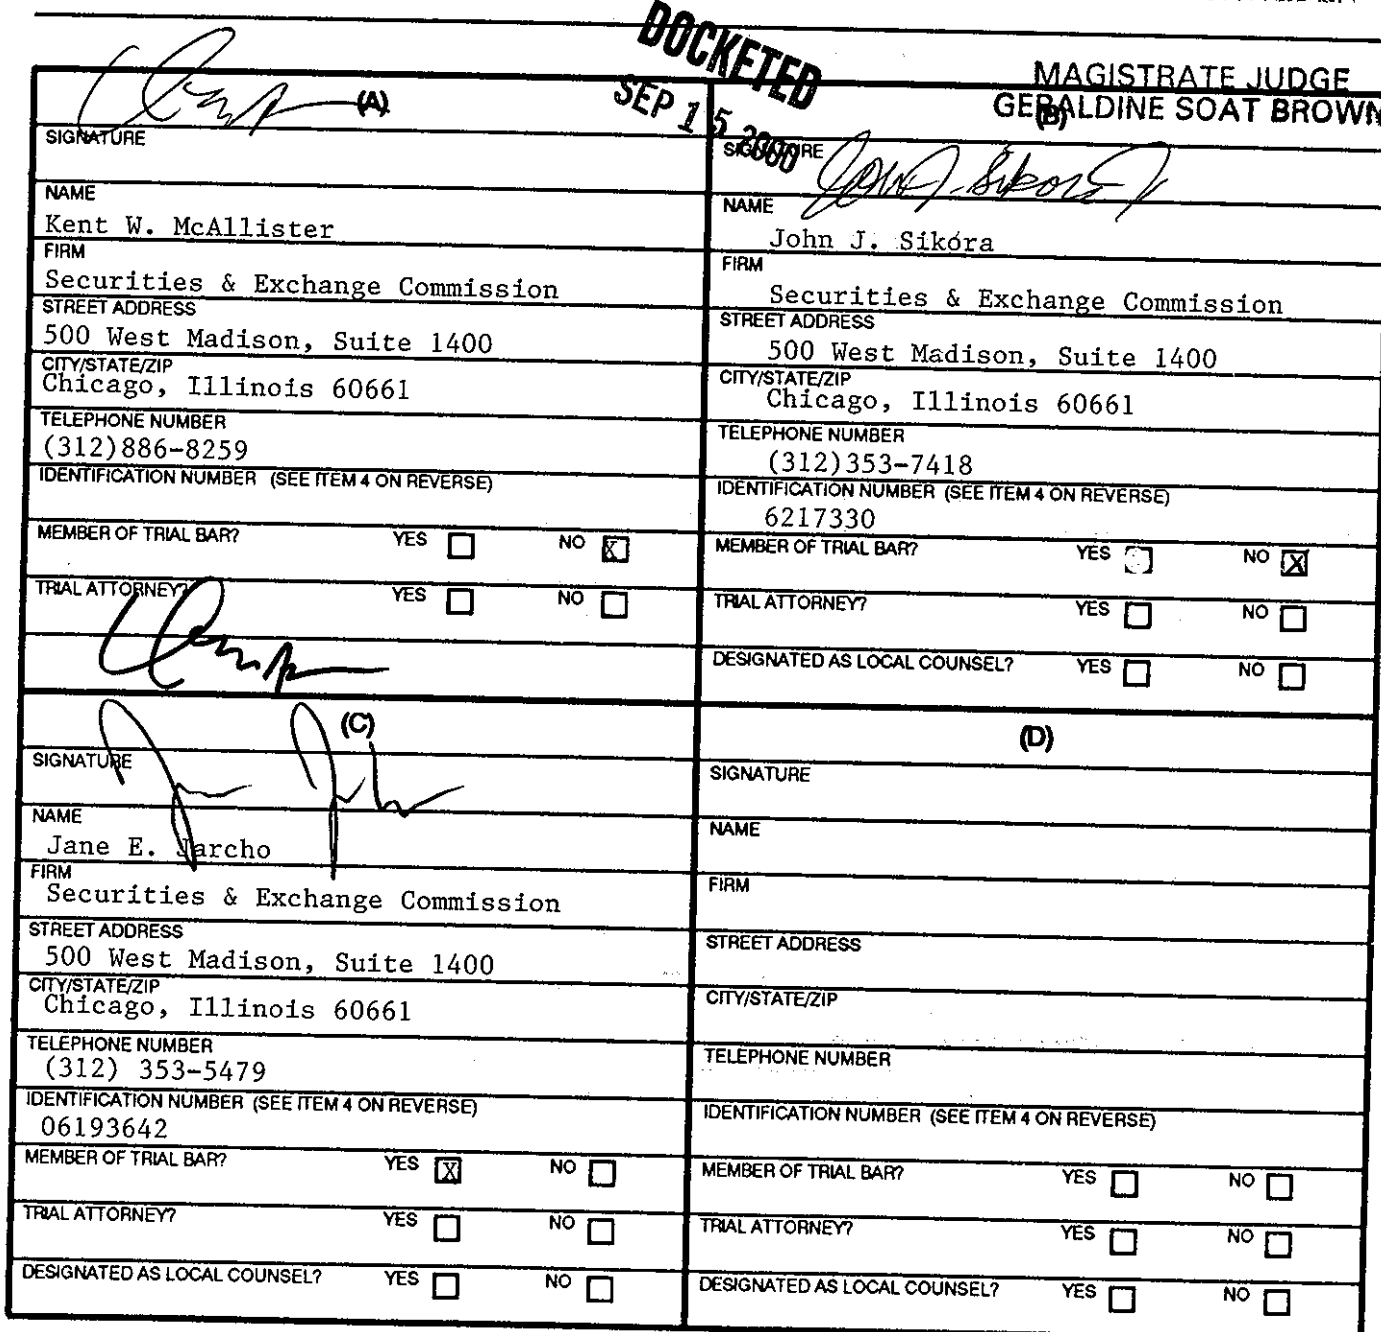 DOCKETED
SEP 15 2000
MAGISTRATE JUDGE
GERALDINE SOAT BROWN
(A)
SIGNATURE
NAME
Kent W. McAllister
FIRM
Securities & Exchange Commission
STREET ADDRESS
500 West Madison, Suite 1400
CITY/STATE/ZIP
Chicago, Illinois 60661
TELEPHONE NUMBER
(312)886-8259
IDENTIFICATION NUMBER (SEE ITEM 4 ON REVERSE)
MEMBER OF TRIAL BAR? YES NO X
TRIAL ATTORNEY? YES NO
(B)
SIGNATURE John J. Sikora Jr
NAME
John J. Sikora
FIRM
Securities & Exchange Commission
STREET ADDRESS
500 West Madison, Suite 1400
CITY/STATE/ZIP
Chicago, Illinois 60661
TELEPHONE NUMBER
(312)353-7418
IDENTIFICATION NUMBER (SEE ITEM 4 ON REVERSE)
6217330
MEMBER OF TRIAL BAR? YES NO X
TRIAL ATTORNEY? YES NO
DESIGNATED AS LOCAL COUNSEL? YES NO
(C)
SIGNATURE
NAME
Jane E. Jarcho
FIRM
Securities & Exchange Commission
STREET ADDRESS
500 West Madison, Suite 1400
CITY/STATE/ZIP
Chicago, Illinois 60661
TELEPHONE NUMBER
(312) 353-5479
IDENTIFICATION NUMBER (SEE ITEM 4 ON REVERSE)
06193642
MEMBER OF TRIAL BAR? YES X NO
TRIAL ATTORNEY? YES NO
DESIGNATED AS LOCAL COUNSEL? YES NO
(D)
SIGNATURE
NAME
FIRM
STREET ADDRESS
CITY/STATE/ZIP
TELEPHONE NUMBER
IDENTIFICATION NUMBER (SEE ITEM 4 ON REVERSE)
MEMBER OF TRIAL BAR? YES NO
TRIAL ATTORNEY? YES NO
DESIGNATED AS LOCAL COUNSEL? YES NO